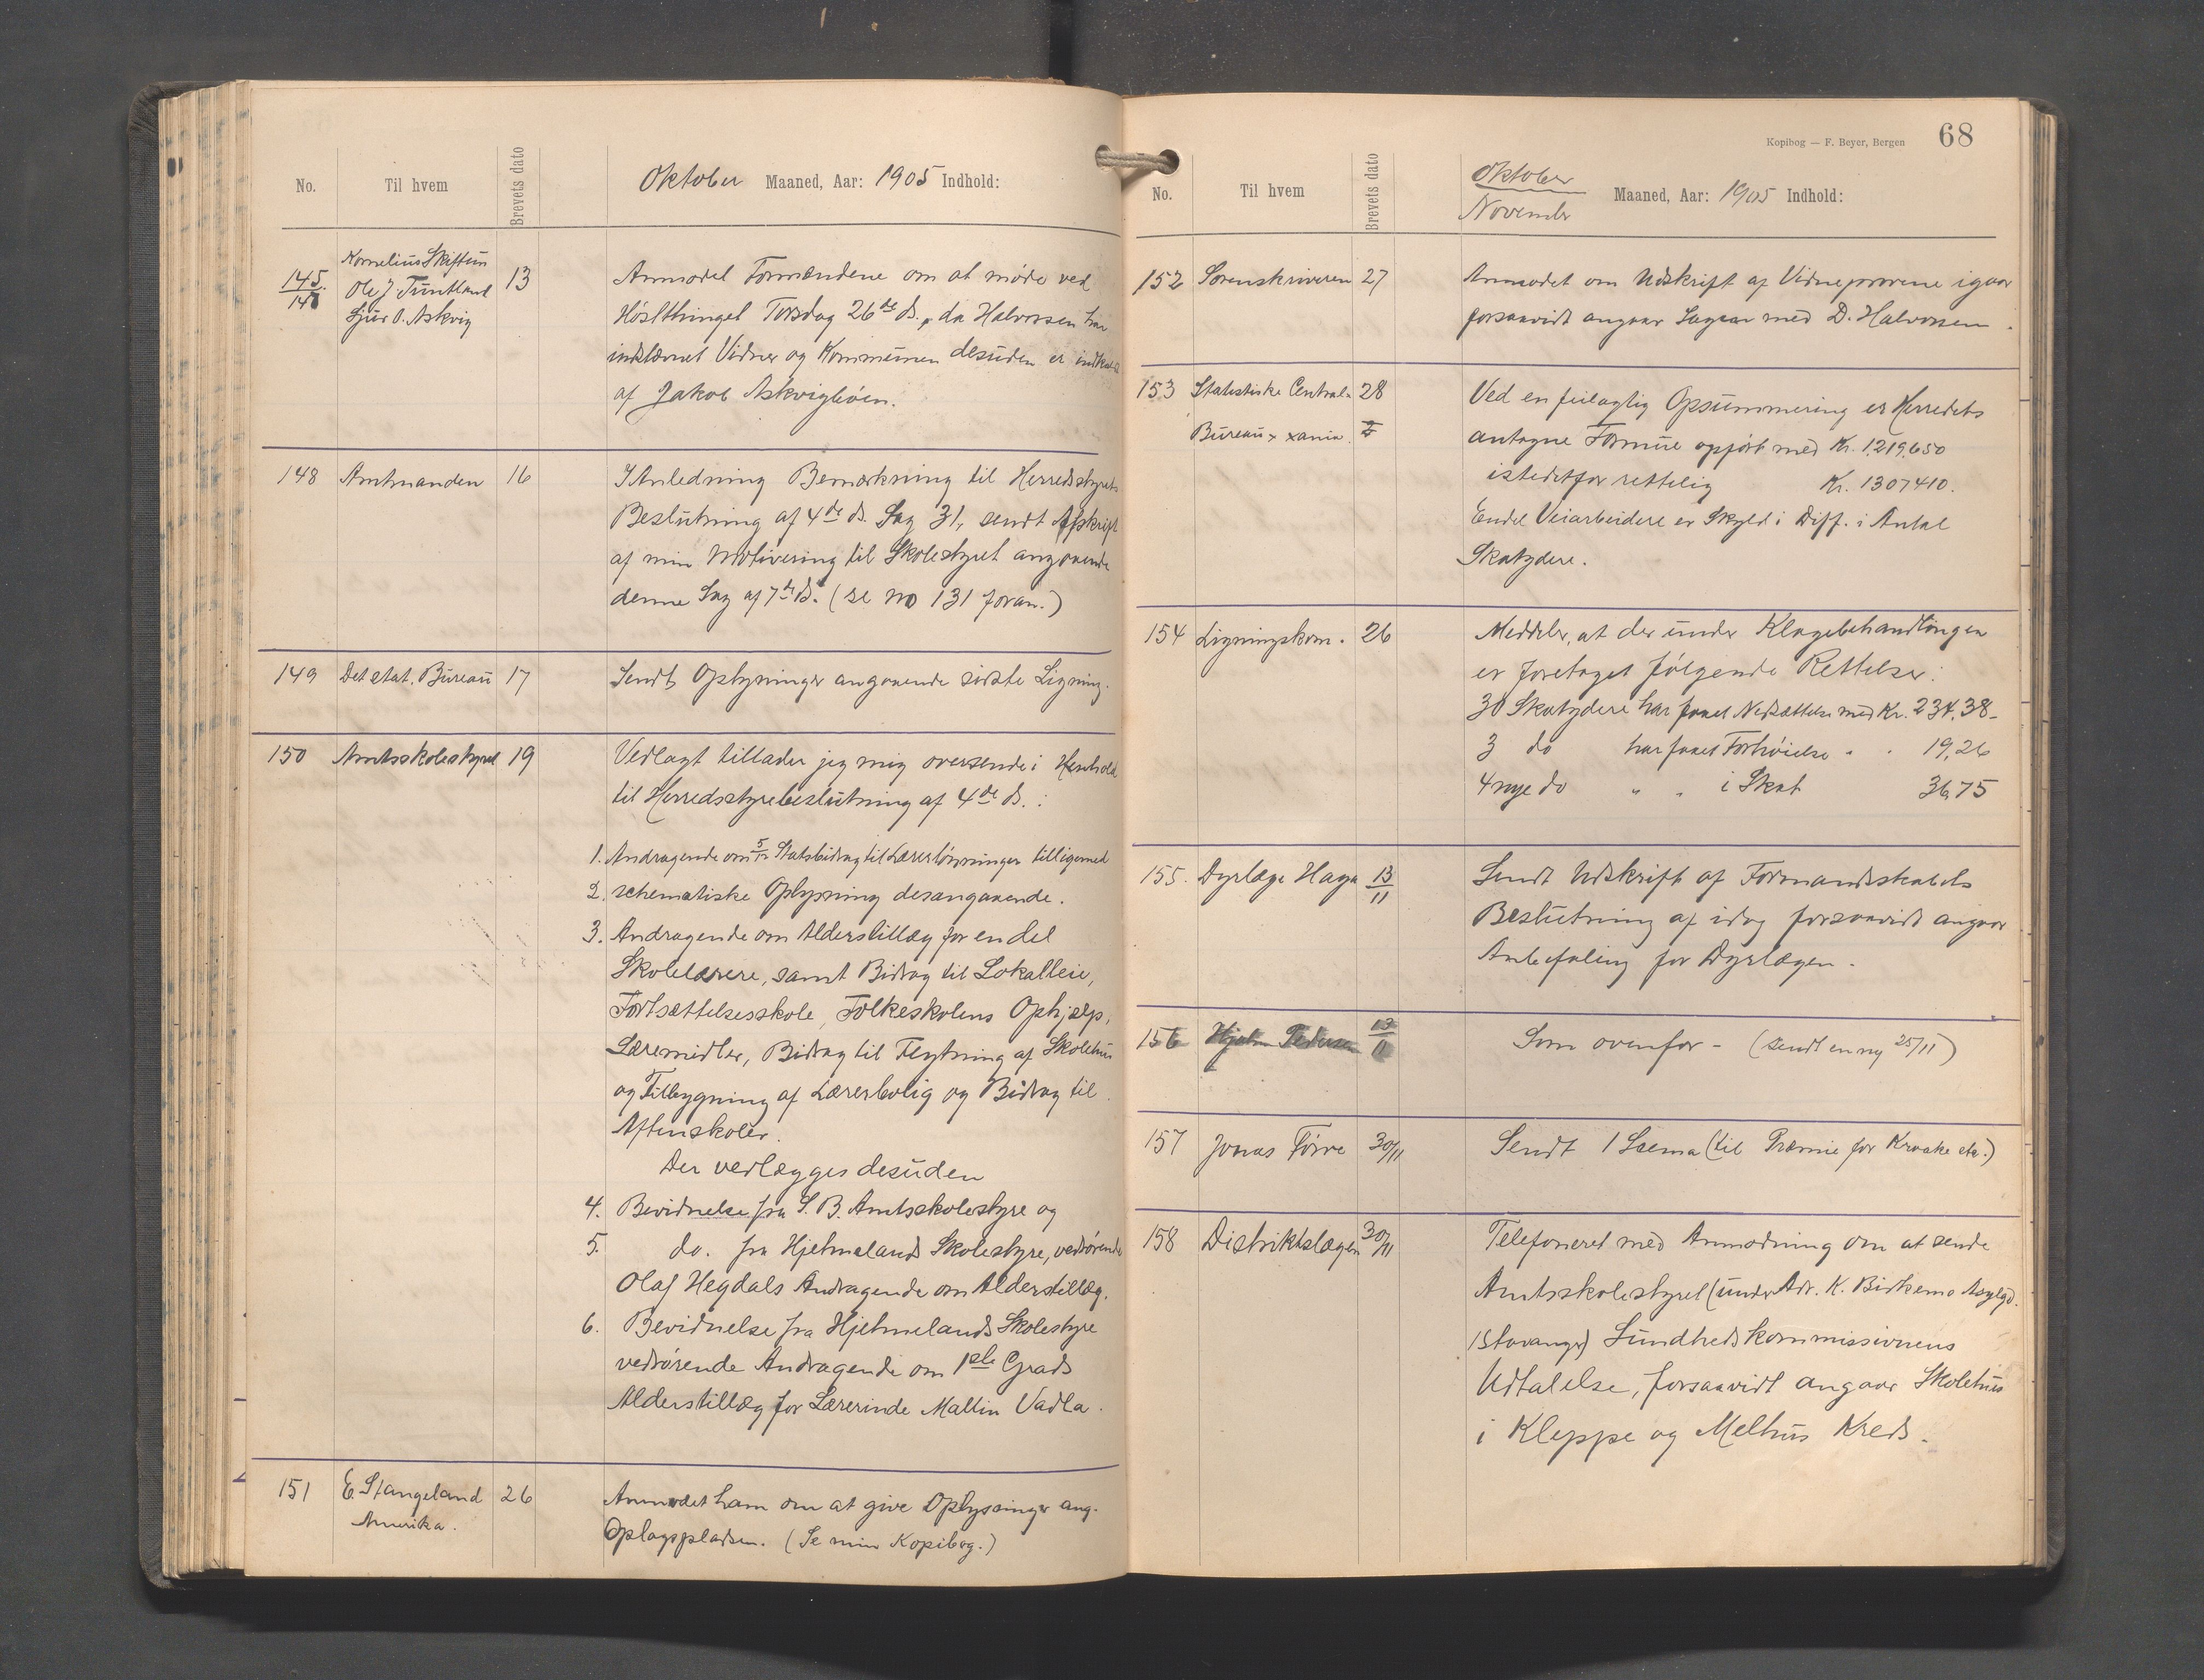 No. Til hvem Brevets dato Oktober Maaned, Aar: 1905 Indhold:
145/147 Kornelius Skiftun
Ole J. Tuntland
Sjur O. Askvig
13
Anmodet Formændene om at møde ved
Høstthinget Torsdag 26de ds., da Halvorsen har
indstævnet Vidner og Kommunen desuden er
af Jakob Askvigbøen.
148 Amtmanden 16
I Anledning Bemærkning til Herredsstyrets
Beslutning af 4de ds. Sag 31, sendt Afskrift
af min Motivering til Skolestyret angaaende
denne Sag af 7de ds. (se No 131 foran.)
149 Det stat. Bureau 17
Sendt Oplysninger angaaende sidste Ligning.
150 Amtsskolestyret 19
Vedlagt tillader jeg mig oversende i Henhold
til Herredsstyrebeslutning af 4de ds. :
1. Andragende om 5/12 Statsbidrag til Lærerlønninger tilligemed
2. schematiske Oplysning desangaaende.
3. Andragende om Alderstillæg for en del
Skolelærere, samt Bidrag til Lokalleie,
Fortsættelsesskole, Folkeskolens Ophjælp,
Læremidler, Bidrag til Flytning af Skolehus
og Tilbygning af Lærerbolig og Bidrag til
Aftenskoler.
Der vedlægges desuden
4. Bevidnelse fra S. B. Amtsskolestyre og
5. do. fra Hjelmelands Skolestyre, vedrørende
Olaf Hegdals Andragende om Alderstillæg.
6. Bevidnelse fra Hjelmelands Skolestyre
vedrørende Andragende om 1ste Grads
Alderstillæg for Lærerinde Mallin Vadla.
151 E. Stangeland 26
Amerika.
Anmodet ham om at give Oplysninger ang.
Oplagspladsen. (Se min Kopibog.)
Kopibog — F. Beyer, Bergen 68
No. Til hvem Brevets dato Oktober
November Maaned, Aar: 1905 Indhold:
152 Sorenskriveren 27
Anmodet om Udskrift af Vidneprovene igaar
forsaavidt angaar Sagen med D. Halvorsen.
153 Statistiske Central- 28
Bureau, Xania.
Ved en feilagtig Opsummering er Herredets
antagne Formue opført med Kr. 1.219.650
istedetfor rettelig Kr. 1307410.
Endel Veiarbeidere er Skyld i Diff. i Antal
Skatydere.
154 Ligningskom. 26
Meddeler, at der under Klagebehandlingen
er foretaget følgende Rettelser:
30 Skatydere har faaet Nedsættelse med Kr. 234,38-
3 do har faaet Forhøielse " " 19,26
4 nye do " " i Skat 36,75
155. Dyrlæge Haga 13/11
Sendt Udskrift af Formandsskabets
Beslutning af idag forsaavidt angaar
Anbefaling for Dyrlægen.
156 Hjelm Pedersen 13/11
Som ovenfor - (sendt en ny 25/11)
157 Jonas Tørre 30/11
Sendt 1 Ssema (til Præmie for Kraake etc.)
158 Distriktslægen 30/11
Telefoneret med Anmodning om at sende
Amtsskolestyret (under Adr. K. Birkemo Asylgd.
Stavanger) Sundhedskommissionens
Udtalelse, forsaavidt angaar Skolehus
i Kleppe og Melhus Kreds.